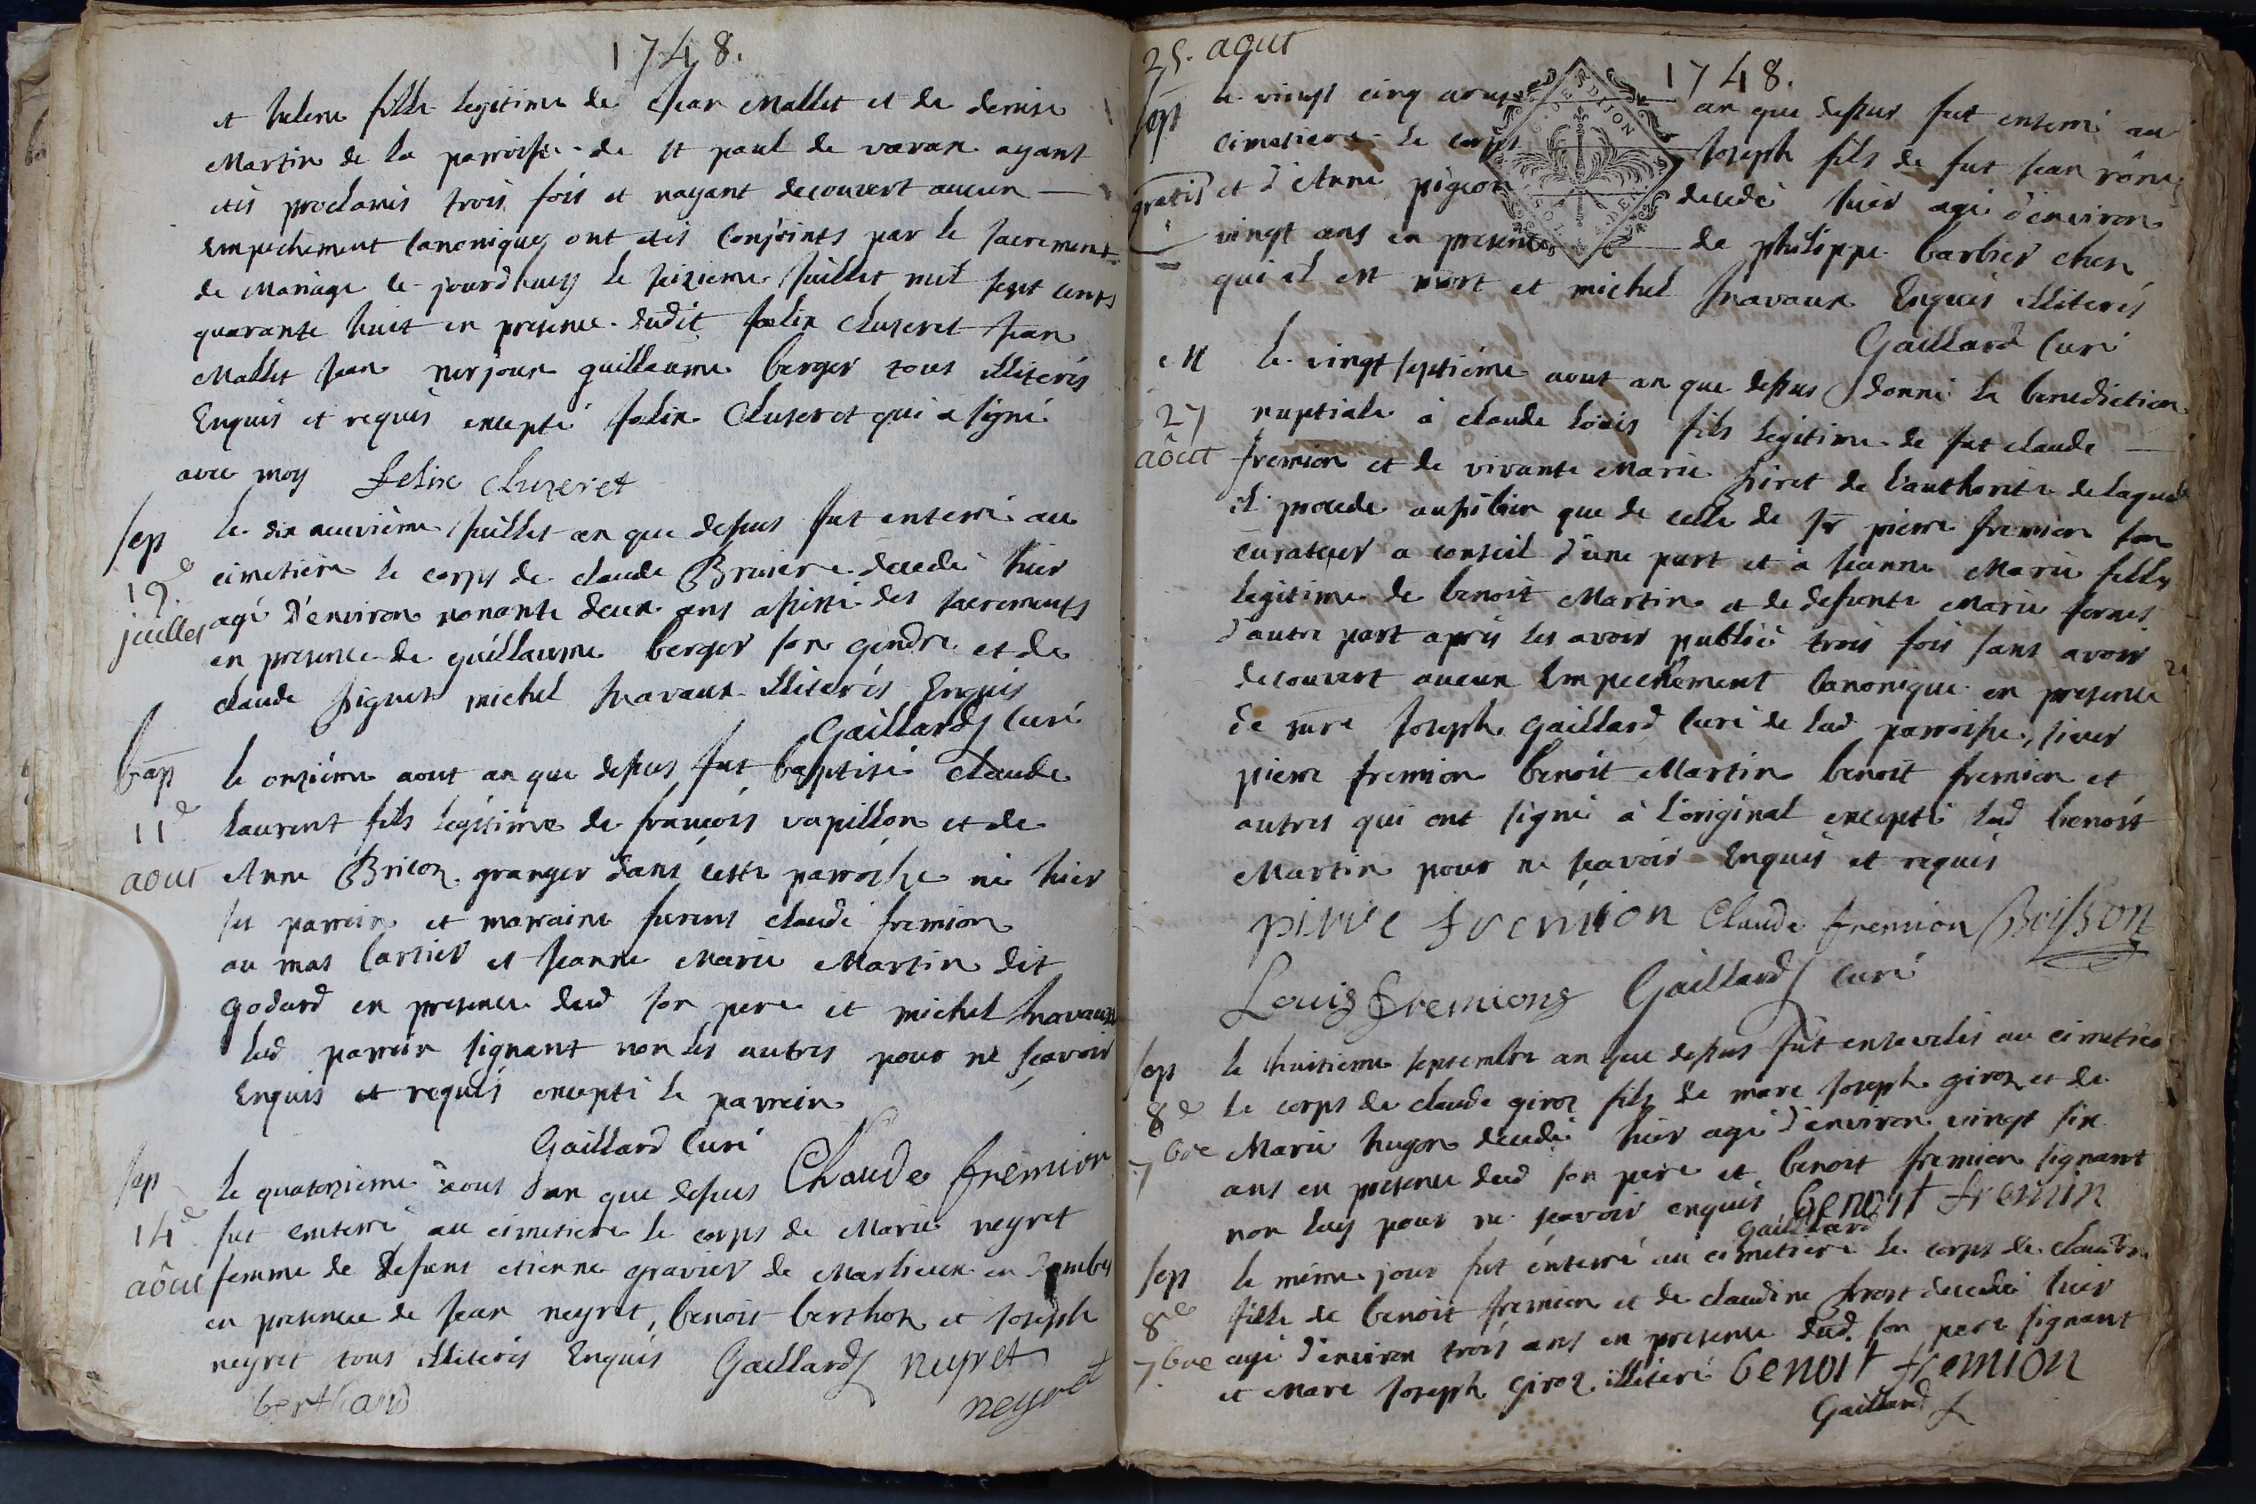 1748.
et helene fille legitime de Jean Mallet et de denise
Martin de la parroisse de st paul de varax ayant
etés proclamés trois fois et nayant decouvert aucun
Empechement Canonique ont etés Conjoints par le sacrement
de Mariage le jourdhuy le seizieme Juillet mil sept cents
quarante huit en presence dudit felix Cluzeret Jean
Mallet Jean guillaume berger tous illiterés
Enquis et requis excepté felix Cluzeret qui a signé
avec moy felix cluzeret
sep
19e
juillet
le dix neuvième Juillet an que dessus fut enterré au
cimetière le corps de claude Bruiere decedé hier
agé d'environ nonante deux ans assisté des sacrements
en presence de guillaume berger son gendre et de
claude michel travaux illiterés Enquis
Gaillard Curé
bap
11e
aout
le onzième aout an que dessus fut baptisé claude
laurent fils legitime de françois vapillon et de
Anne Bricon granger dans cette parroisse né hier
ses parrein et marraine furent claude fremion
au mas Cartier et Jeanne Marie Martin dit
godard en presence dud son pere et michel travaux
lud parrein signant non les autres pour ne sçavoir
Enquis et requis excepté le parrein
Gaillard Curé
Claude fremion
sep
14e
aôut
le quatorzieme aout an que dessus
fut enterré au cimetiere le corps de Marie neyret
femme de defunt etienne gravier de Marlieux en Dombes
en presence de Jean neyret, benoit berthon et Joseph
neyret tous illiterés Enquis Gaillard neyret
berthaud neyret
25. aout
1748.
sep
gratis
le vingt cinq aout an que dessus fut enterré au
cimetiere le corps Joseph fils de fut Jean rône
et d'Anne pigeon decedé hier agé d'environ
vingt ans en presence de philippe barbier chez
qui il est mort et michel travaux Enquis illiterés
Gaillard Curé
DE DIJON
M
27
aôut
le vingt septième aout an que dessus J donné la benediction
nuptiale à claude loüis fils legitime de fut claude
fremion et de vivante Marie piret de l'authorité de laquelle
il procede aussibien que de celle de sr pierre fremion son
curateur a conseil d'une part et à Jeanne Marie fille
legitime de benoit Martin et de defunte Marie
d'autre part apres les avoir publié trois fois sans avoir
decouvert aucun Empechement Canonique en presence
de mre Joseph Gaillard Curé de lad parroisse, sieur
pierre fremion benoit Martin benoit fremion et
autres qui ont signé à l'original excepté lud benoit
Martin pour ne sçavoir Enquis et requis
pierre fremion Claude fremion Boisson
Louis fremions Gaillard Curé
sep
8e
7bre
le huitieme septembre an que dessus fut ensevelis au cimetiere
le corps de claude giroz fils de marc Joseph giroz et de
Marie hugon decedé hier agé d'environ vingt six
ans en presence dud son pere et benoit fremion signant
non luy pour ne sçavoir enquis benoit fremin
Gaillard
sep
8e
7bre
le même jour fut enterré au cimetiere le corps de claudine
fille de benoit fremion et de claudine decedée hier
agé d'environ trois ans en presence dud son pere signant
et Marc Joseph giroz illiteré benoit fremion
Gaillard